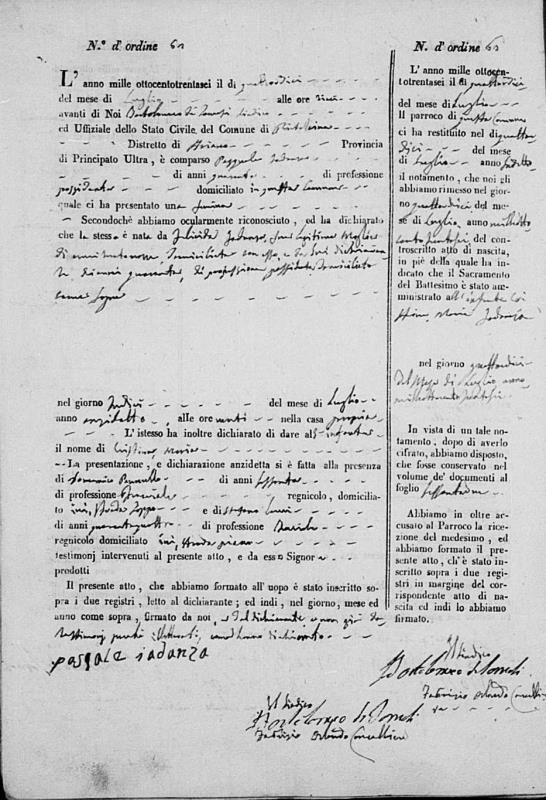 N.° d' ordine 61
L' anno mille ottocentotrentasei il dì quattordici
del mese di Luglio alle ore
avanti di Noi Bartolomeo di Sindico
ed Uffiziale dello Stato Civile, del Comune di
Distretto di Ariano Provincia
di Principato Ultra, è comparso Pasquale Iadanza
di anni quaranta di professione
possidente domiciliato in questo Comune
quale ci ha presentato una femina
Secondochè abbiamo ocularmente riconosciuto, ed ha dichiarato
che la stessa è nata da Iadanza, sua legittima moglie
di anni domiciliata con esso, e da lui dichiarante
di anni quaranta, di professione possidente domiciliato
come sopra
nel giorno del mese di Luglio
anno anzidetto, alle ore venti nella casa propria
L' istesso ha inoltre dichiarato di dare all' infante
il nome di Cristina Maria
La presentazione, e dichiarazione anzidetta si è fatta alla presenza
di Domenico di anni sessanta
di professione regnicolo, domicilia-
to ivi, Strada e di Stefano
di anni quarantaquattro di professione
regnicolo domiciliato ivi, Strada piana
testimonj intervenuti al presente atto, e da esso Signor
prodotti
Il presente atto, che abbiamo formato all' uopo è stato inscritto so-
pra i due registri, letto al dichiarante; ed indi, nel giorno, mese ed
anno come sopra, firmato da noi, e dal dichiarante e non già da
testimonj
pasqale iadanza
Il Sindico
Bartolomeo di
Fabrizio Orlando Cancelliere
N. d' ordine 61
L' anno mille ottocen-
totrentasei il dì quattordici
del mese di Luglio
Il parroco di questo Comune
ci ha restituito nel dì quattor
dici del mese
di Luglio anno suddetto
il notamento, che noi gli
abbiamo rimesso nel gior-
no quattordici del me-
se di Luglio, anno milleotto
cento trentasei, del con-
troscritto atto di nascita,
in piè della quale ha in-
dicato che il Sacramento
del Battesimo è stato am-
ministrato all' infante Cri
stina Maria Iadanza
nel giorno quattordici
del mese di Luglio anno
milleottocento trentasei
In vista di un tale no-
tamento, dopo di averlo
cifrato, abbiamo disposto,
che fosse conservato nel
volume de' documenti al
foglio sessantuno
Abbiamo in oltre ac-
cusato al Parroco la rice-
zione del medesimo, ed
abbiamo formato il pre-
sente atto, ch' è stato in-
scritto sopra i due regi-
stri in margine del cor-
rispondente atto di na-
scita ed indi lo abbiamo
firmato.
Il Sindico
Bartolomeo di
Fabrizio Orlando Cancelliere